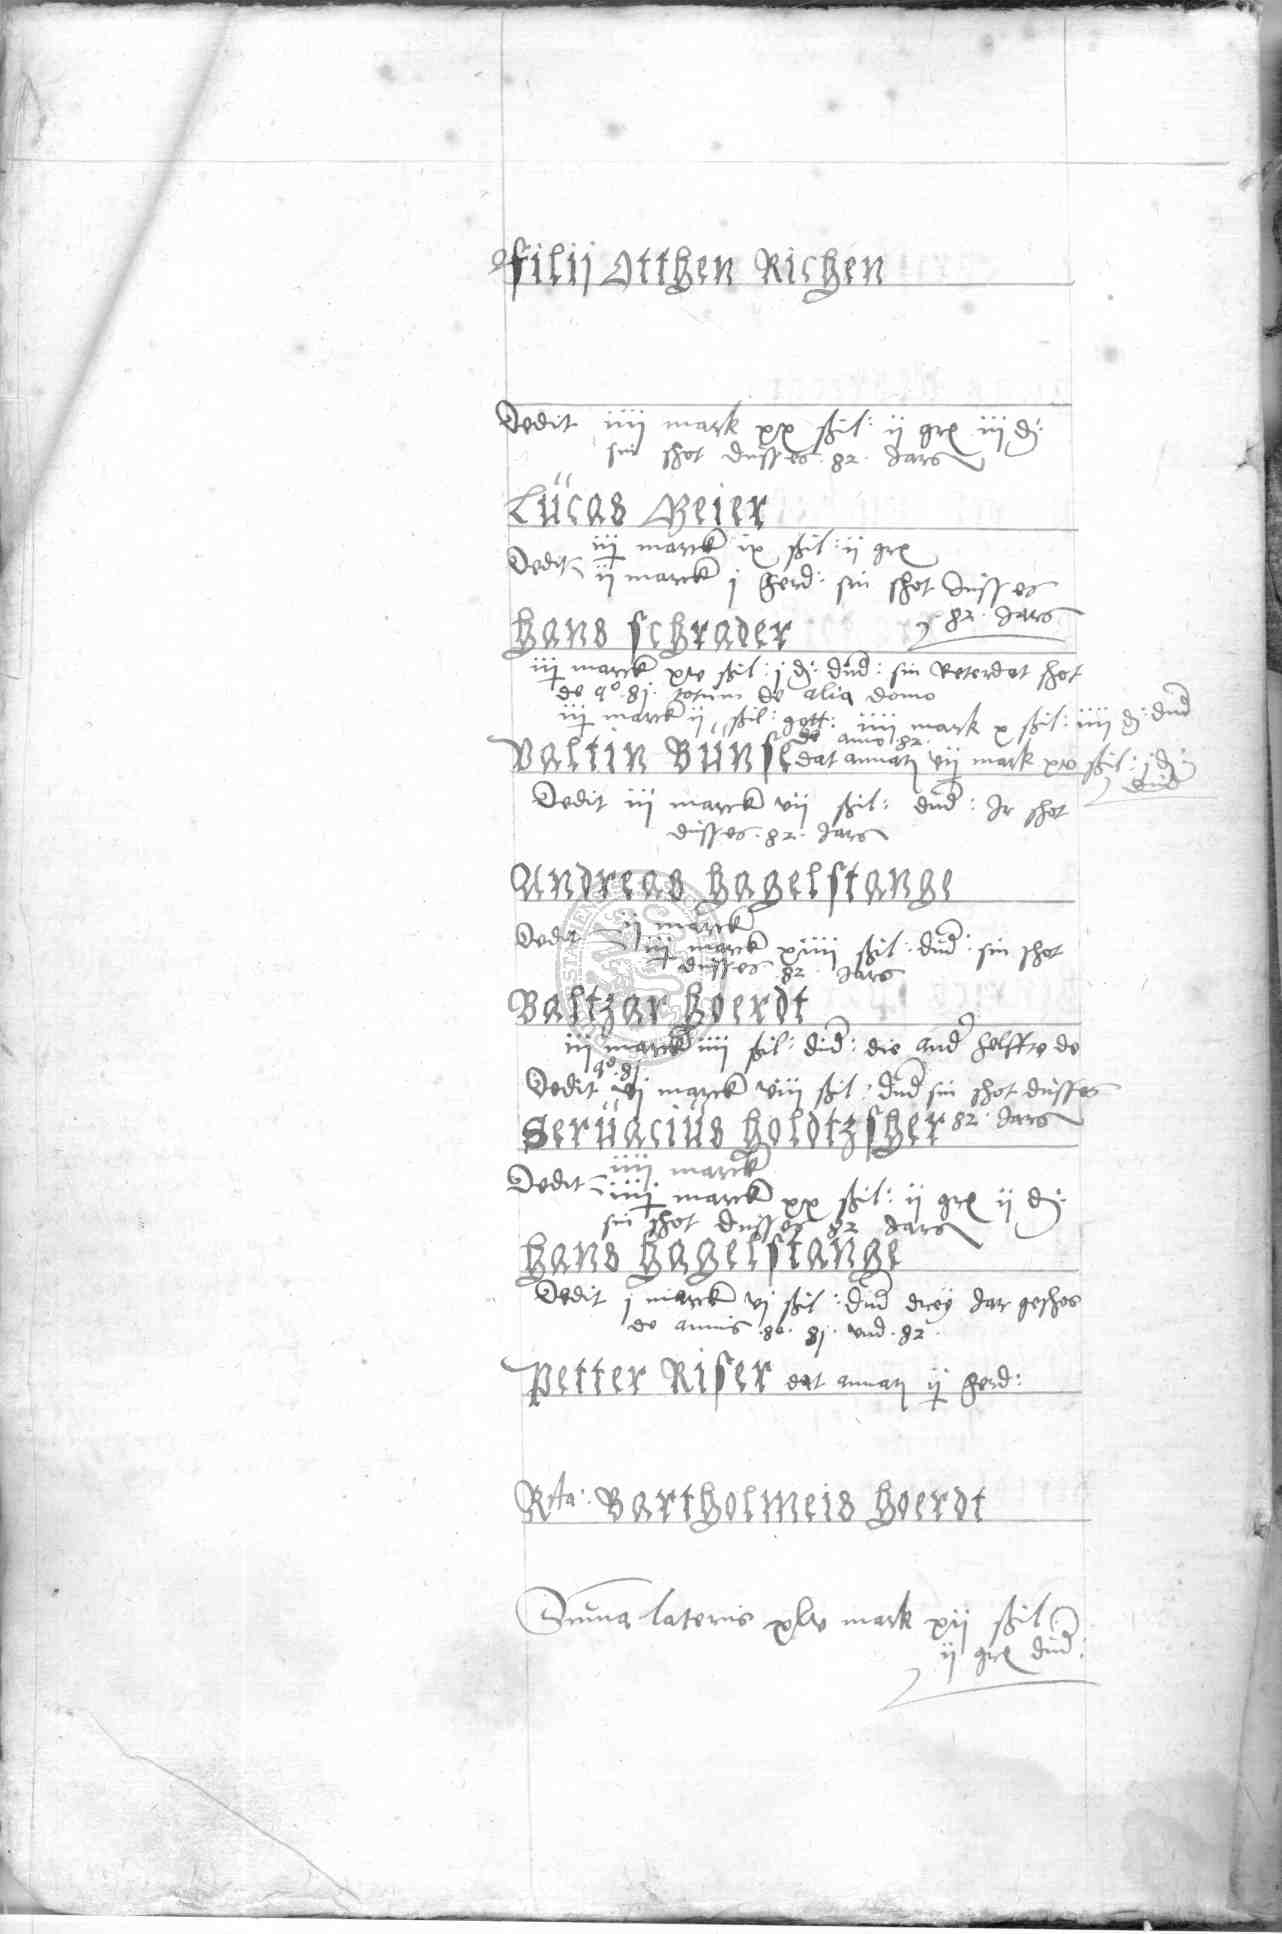 filij Otthen Richen
Dedit iiij mark xx ßil: ij gr iij δ:
sin shot dusses 82 Jars
Lücas Beier
iij marck ix ßil: ij gr
Dedit ij marck j ferd: sin shot dusses
82 Jars
Hans Schrader
iij marck xv ßil: j δ: dnd: sin Retordat shot
de a° 81 totum de alia domo
iij marck ij ßil: gott: iiij mark x ßil: iiij δ: dnd
de anno 82
Valtin Bünse dat annati vij mark xv ßil: j δ:
dnd
Dedit iij marck vij ßil: dnd: Ir shot
dusses 82 Jars
Andreas Hagelstange
ij marck
Dedit iij marck xiiij ßil: dnd: sin shot
dusses 82 Jars
Baltzar Hoerdt
iij marck iiij ßil: dnd: die and helffte de
a° 81
Dedit vj marck viij ßil: dnd sin shot dusses
82 Jars
Seruacius Holdtzsher
iiij marck
Dedit iiij marck xx ßil: ij gr ij δ:
sin shot dusses 82 Jars
Hans Hagelstange
Dedit j marck vj ßil: dnd drey Jar geshos
de annis 80 81 vnd 82
Petter Riser dat annati ij ferd:
Rta: Bartholmeis Hoerdt
Suma lateris xlv mark xij ßil
ij gr dnd: